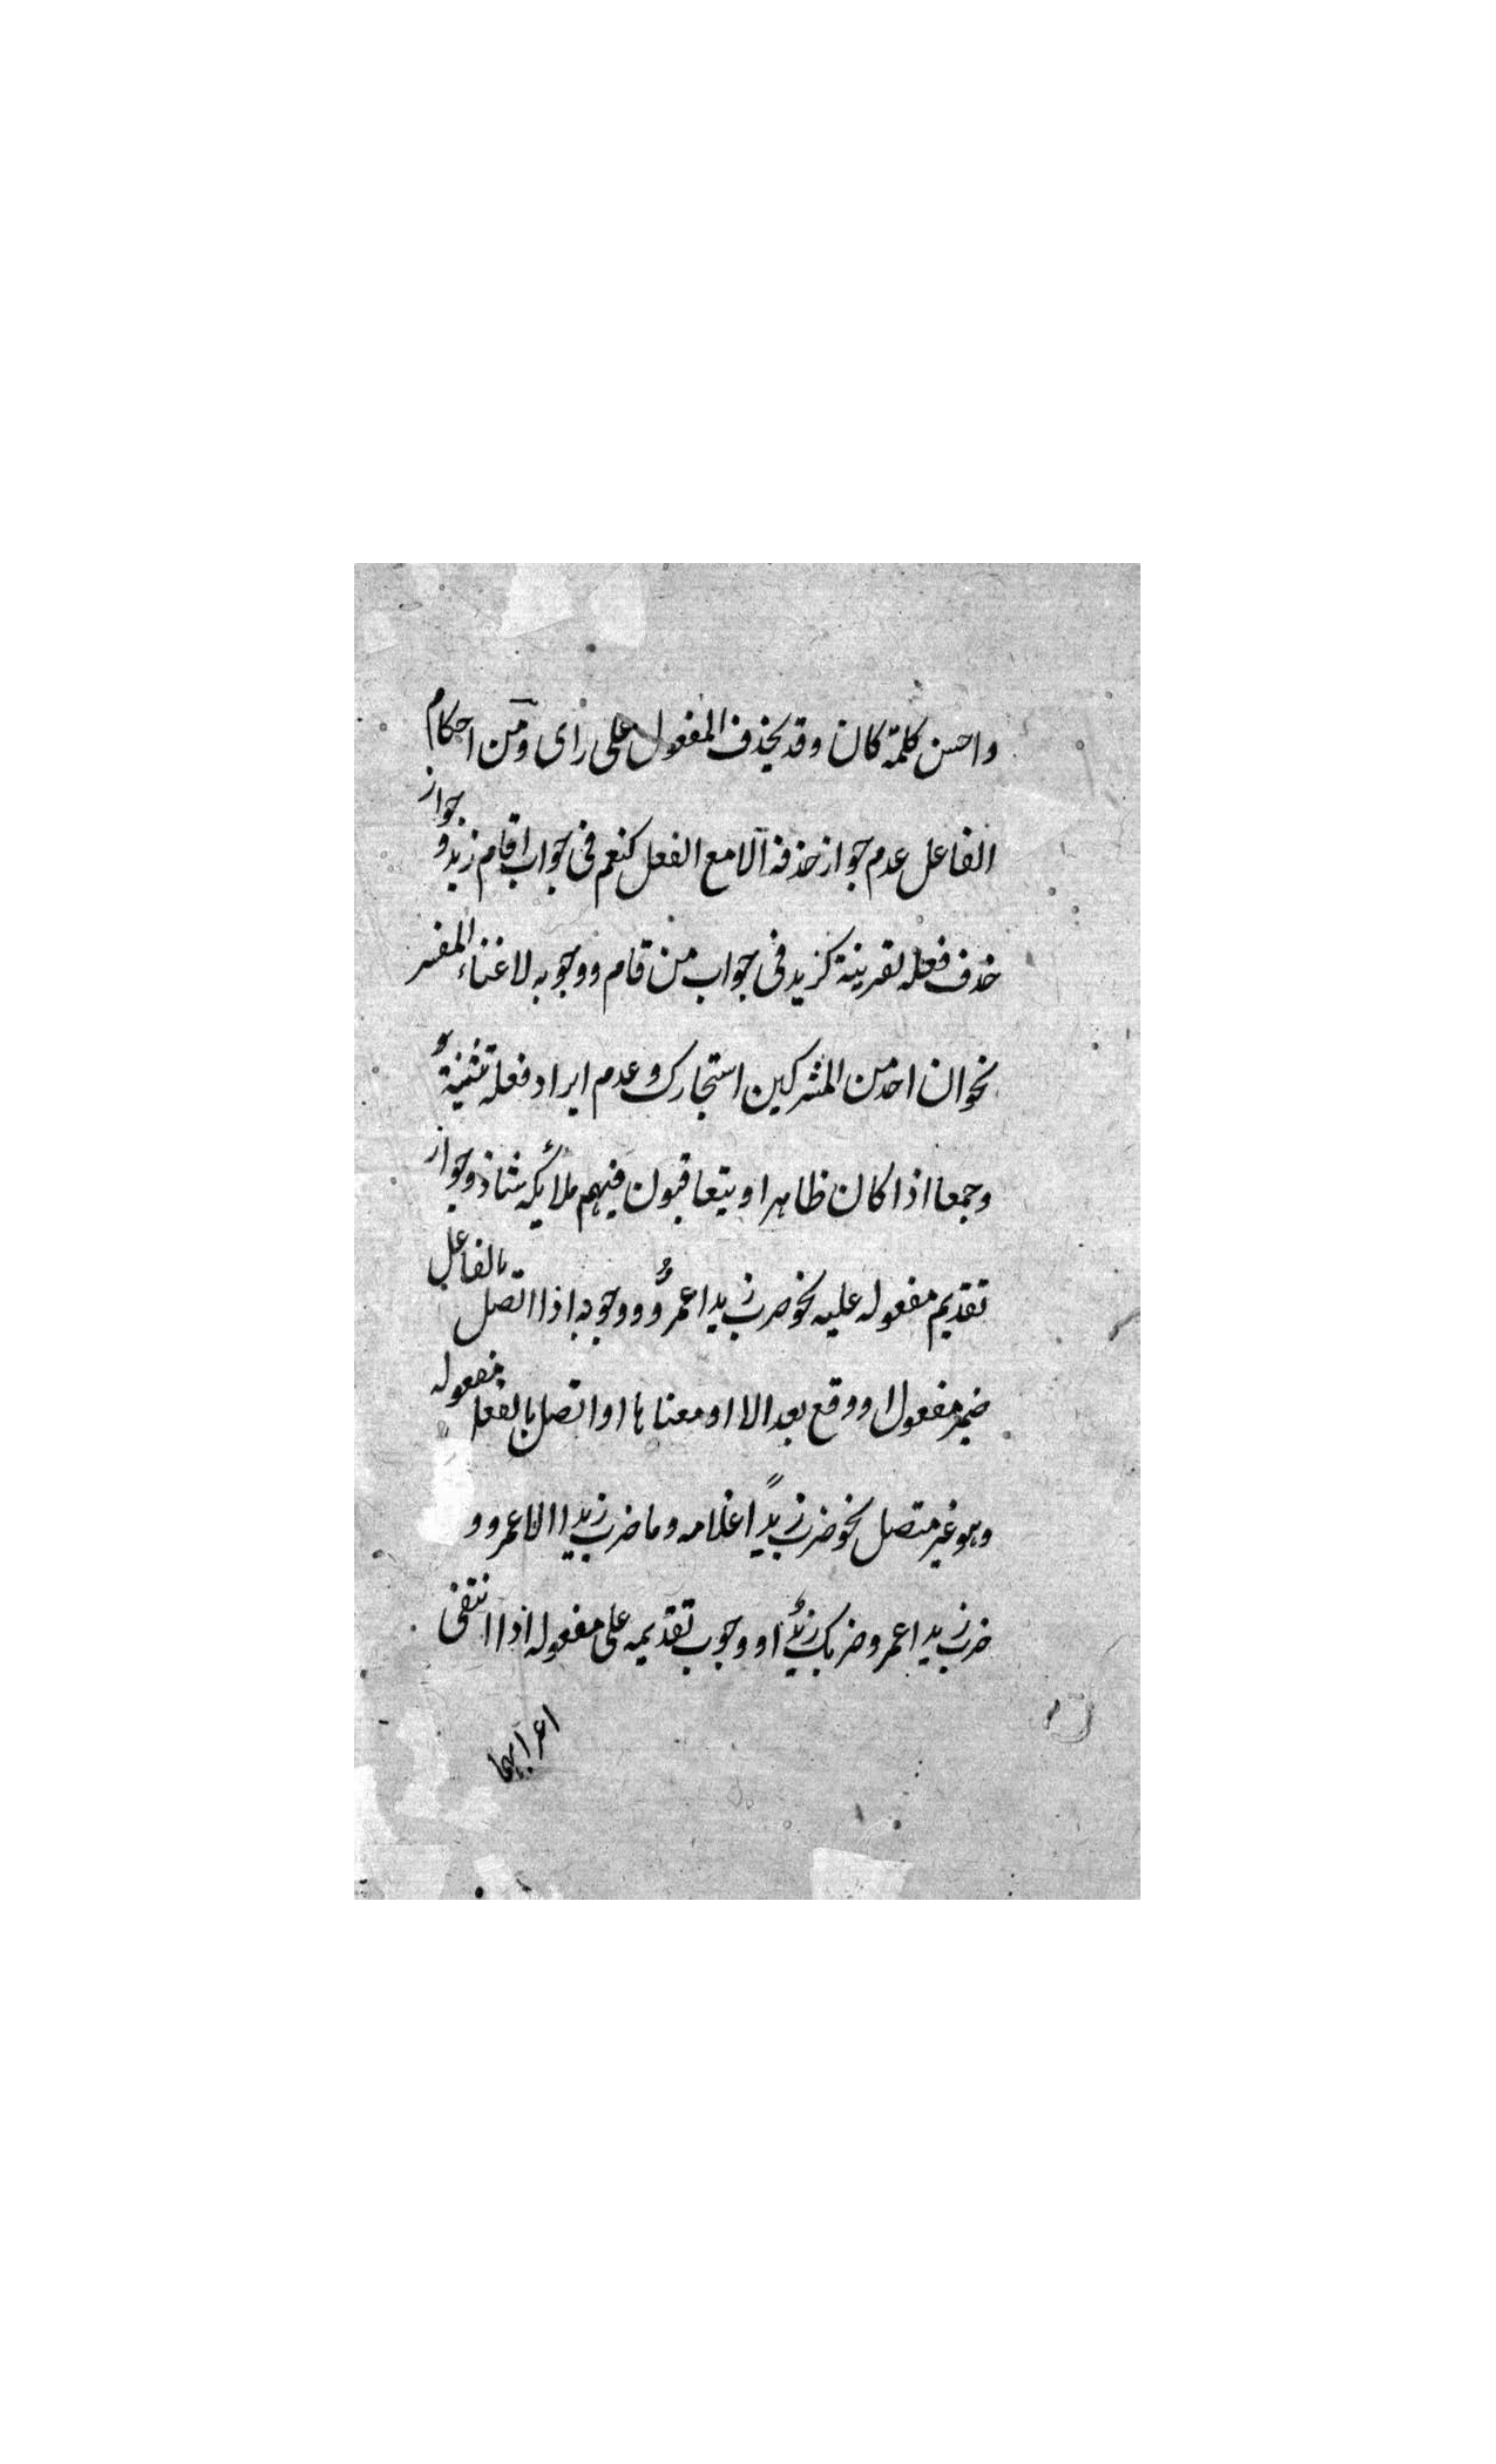 واحسن كلمة كان وقد يحذف المفعول على راى ومن احكام
الفاعل عدم جواز حذفه الا مع الفعل كنعم فى جواب اقام زيد و جواز
حذف فعله لقرينة كزيد فى جواب من قام ووجوبه لاغناء المفسر
نحو ان احد من المشركين استجارك وعدم ايراد فعله تثنية
وجمعا اذا كان ظاهرا ويتعاقبون فيهم ملائكه شاذ وجواز
تقديم مفعوله عليه نحو ضرب زيدا عمرٌو ووجوبه اذا اتصل بالفاعل
ضمير مفعول او وقع بعد الا او معناها او اتصل بالفعل مفعوله
وهو غير متصل نحو ضرب زيدًا غلامه وما ضرب زيدا الا عمرو و
ضرب زيدا عمرو وضربك زيد او وجوب تقديمه على مفعوله اذا انتفى
اعرابهما